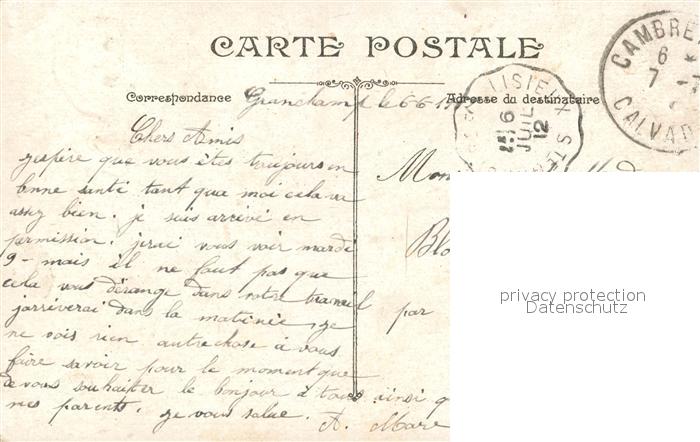 CARTE POSTALE
Correspondance
Adresse du destinataire
Granchamp le 6-6-19
LISIEUX
16
JUIL
12
CAMBRE
6
7
CALVAD
Chers Amis
jespère que vous êtes toujours en
bonne santé tant que moi cela va
assez bien. je suis arrivé en
permission. jirai vous voir mardi
9 - mais il ne faut pas que
cela vous dérange dans votre travail
jarriverai dans la matinée, je
ne vois rien autre chose à vous
faire savoir pour le moment que
de vous souhaiter le bonjour à tous ainsi q
mes parents. je vous salue.
A. Mare
Mon
Blo
par
privacy protection
Datenschutz